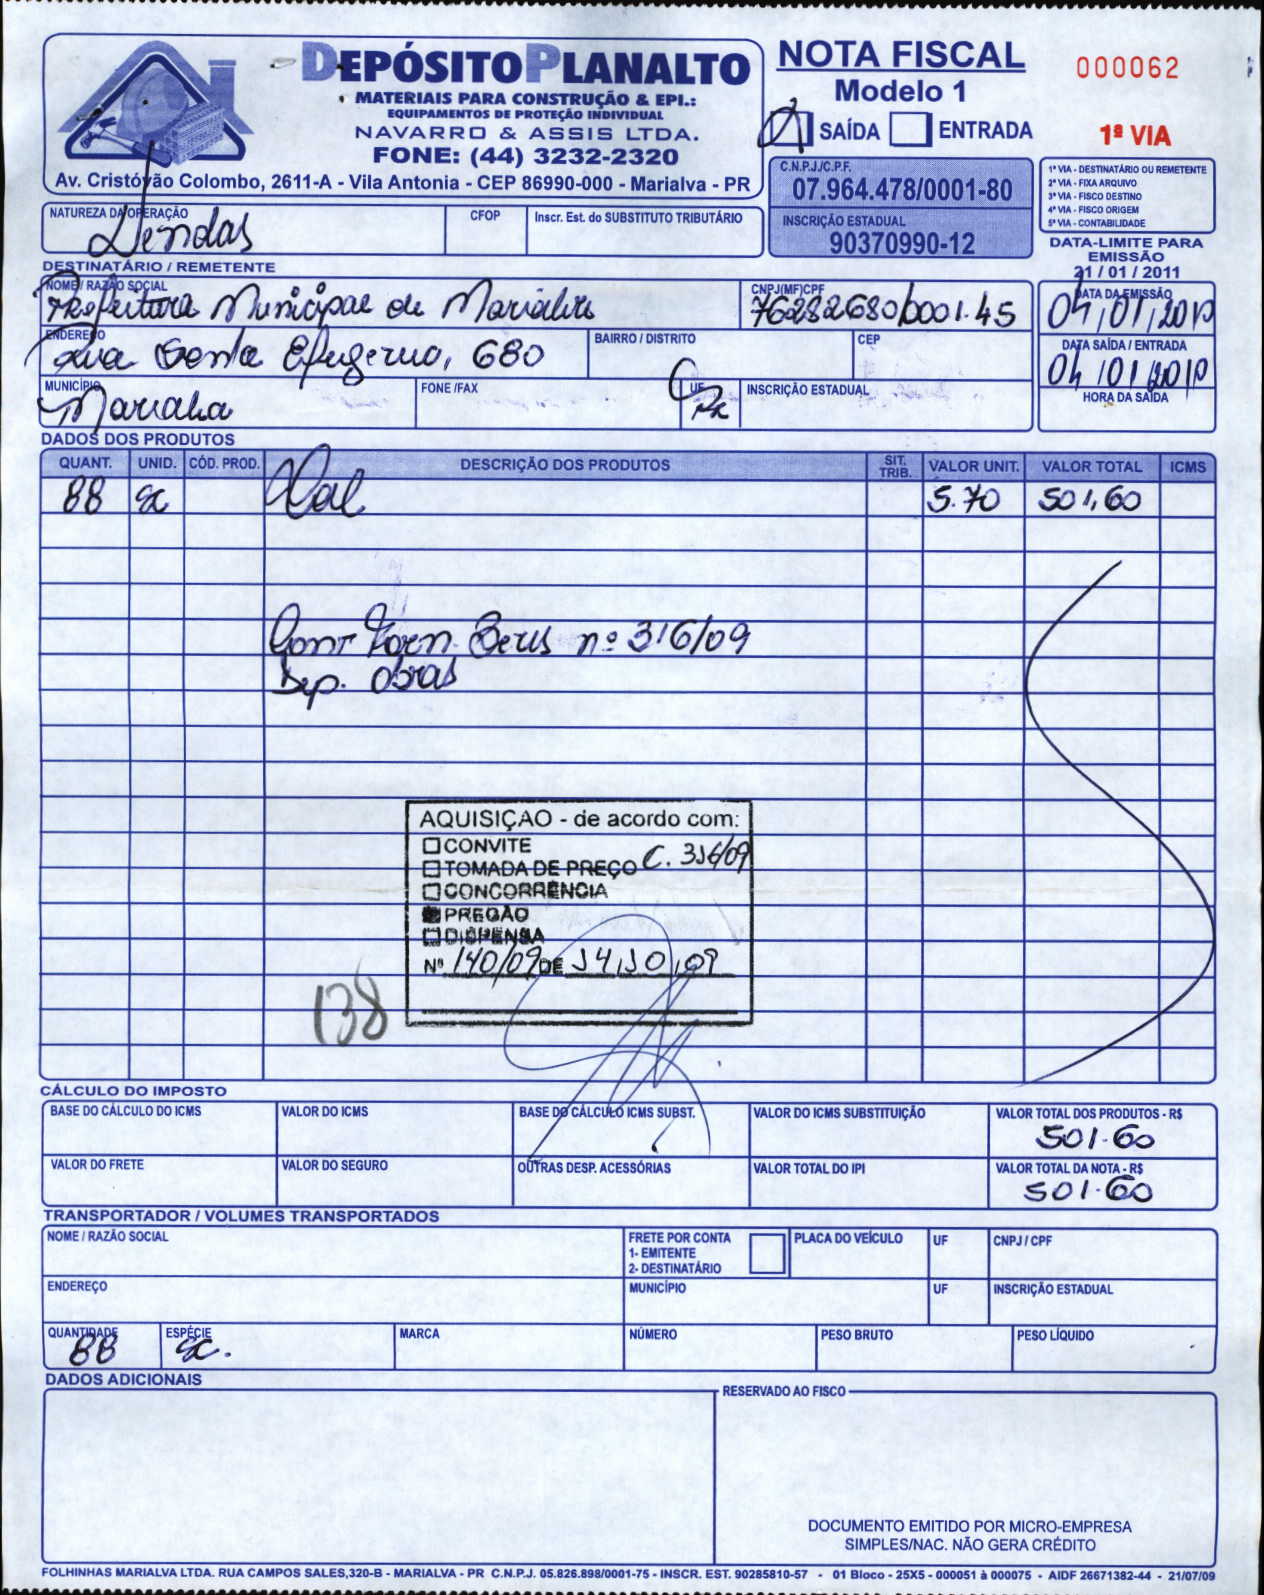 DEPÓSITO PLANALTO
MATERIAIS PARA CONSTRUÇÃO & EPI.:
EQUIPAMENTOS DE PROTEÇÃO INDIVIDUAL
NAVARRO & ASSIS LTDA.
FONE: (44) 3232-2320
Av. Cristóvão Colombo, 2611-A - Vila Antonia - CEP 86990-000 - Marialva - PR
NOTA FISCAL
Modelo 1
SAÍDA ENTRADA
000062
1ª VIA
C.N.P.J./C.P.F.
07.964.478/0001-80
INSCRIÇÃO ESTADUAL
90370990-12
1ª VIA - DESTINATÁRIO OU REMETENTE
2ª VIA - FIXA ARQUIVO
3ª VIA - FISCO DESTINO
4ª VIA - FISCO ORIGEM
5ª VIA - CONTABILIDADE
DATA-LIMITE PARA
EMISSÃO
21 / 01 / 2011
NATUREZA DA OPERAÇÃO CFOP Inscr. Est. do SUBSTITUTO TRIBUTÁRIO
Vendas
DESTINATÁRIO / REMETENTE
NOME / RAZÃO SOCIAL CNPJ(MF)CPF DATA DA EMISSÃO
Prefeitura Municipal de Marialva 76282680/0001.45 04,01,2010
ENDEREÇO BAIRRO / DISTRITO CEP DATA SAÍDA / ENTRADA
Rua Santa Efigenia, 680 04/01/2010
MUNICÍPIO FONE /FAX UF INSCRIÇÃO ESTADUAL HORA DA SAÍDA
Marialva PR
DADOS DOS PRODUTOS
QUANT. UNID. CÓD. PROD. DESCRIÇÃO DOS PRODUTOS SIT. TRIB. VALOR UNIT. VALOR TOTAL ICMS
88 sc Cal 5.70 501,60
Cont Forn. Bens nº 316/09
Dep. Obras
AQUISIÇÃO - de acordo com:
CONVITE
TOMADA DE PREÇO C. 316/09
CONCORRÊNCIA
PREGÃO
DISPENSA
Nº 140/09 DE 14,10,09
138
CÁLCULO DO IMPOSTO
BASE DO CÁLCULO DO ICMS VALOR DO ICMS BASE DO CÁLCULO ICMS SUBST. VALOR DO ICMS SUBSTITUIÇÃO VALOR TOTAL DOS PRODUTOS - R$
501.60
VALOR DO FRETE VALOR DO SEGURO OUTRAS DESP. ACESSÓRIAS VALOR TOTAL DO IPI VALOR TOTAL DA NOTA - R$
501.60
TRANSPORTADOR / VOLUMES TRANSPORTADOS
NOME / RAZÃO SOCIAL FRETE POR CONTA PLACA DO VEÍCULO UF CNPJ / CPF
1- EMITENTE
2- DESTINATÁRIO
ENDEREÇO MUNICÍPIO UF INSCRIÇÃO ESTADUAL
QUANTIDADE ESPÉCIE MARCA NÚMERO PESO BRUTO PESO LÍQUIDO
88 sc.
DADOS ADICIONAIS
RESERVADO AO FISCO
DOCUMENTO EMITIDO POR MICRO-EMPRESA
SIMPLES/NAC. NÃO GERA CRÉDITO
FOLHINHAS MARIALVA LTDA. RUA CAMPOS SALES,320-B - MARIALVA - PR C.N.P.J. 05.826.898/0001-75 - INSCR. EST. 90285810-57 - 01 Bloco - 25X5 - 000051 à 000075 - AIDF 26671382-44 - 21/07/09